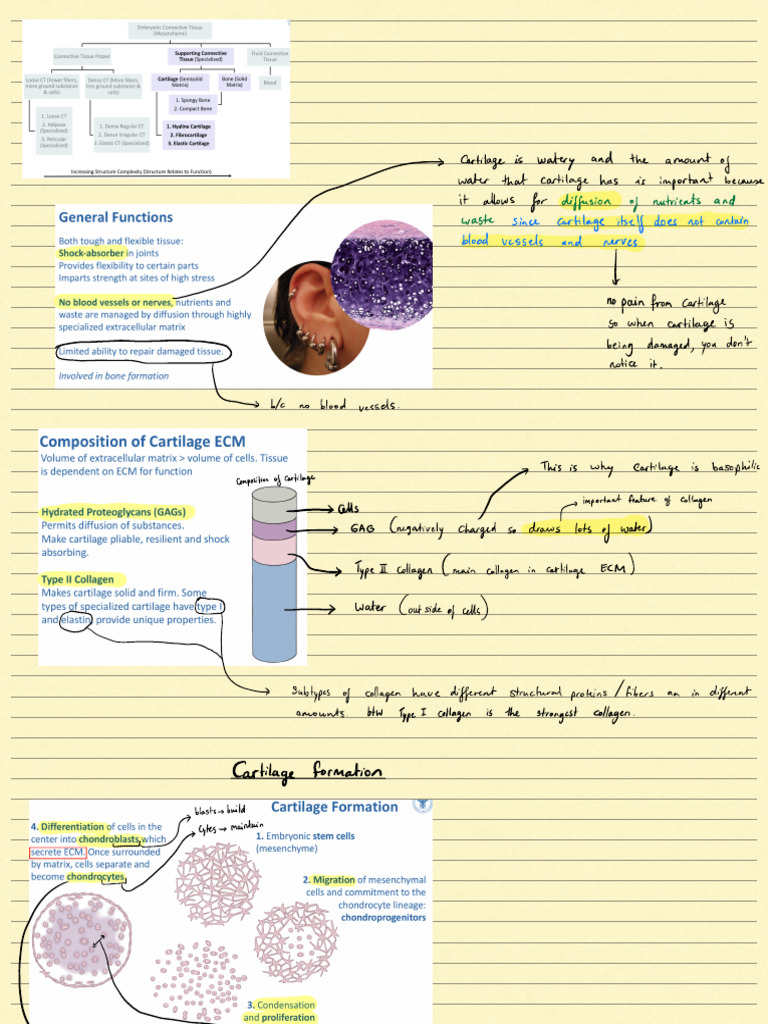 Embryonic Connective Tissue
(Mesenchyme)
Connective Tissue Proper
Supporting Connective
Tissue (Specialized)
Fluid Connective
Tissue
Loose CT (Fewer fibers,
more ground substance
& cells)
Dense CT (More fibers,
less ground substance &
cells)
Cartilage (Semisolid
Matrix)
Bone (Solid
Matrix)
Blood
1. Spongy Bone
2. Compact Bone
1. Loose CT
2. Adipose
(Specialized)
3. Reticular
(Specialized)
1. Dense Regular CT
2. Dense Irregular CT
3. Elastic CT (Specialized)
1. Hyaline Cartilage
2. Fibrocartilage
3. Elastic Cartilage
Increasing Structure Complexity (Structure Relates to Function)
Cartilage is watery and the amount of
water that cartilage has is important because
it allows for diffusion of nutrients and
waste since cartilage itself does not contain
blood vessels and nerves
no pain from cartilage
so when cartilage is
being damaged, you don't
notice it.
General Functions
Both tough and flexible tissue:
Shock-absorber in joints
Provides flexibility to certain parts
Imparts strength at sites of high stress
No blood vessels or nerves, nutrients and
waste are managed by diffusion through highly
specialized extracellular matrix
Limited ability to repair damaged tissue.
Involved in bone formation
b/c no blood vessels.
Composition of Cartilage ECM
Volume of extracellular matrix > volume of cells. Tissue
is dependent on ECM for function
Hydrated Proteoglycans (GAGs)
Permits diffusion of substances.
Make cartilage pliable, resilient and shock
absorbing.
Type II Collagen
Makes cartilage solid and firm. Some
types of specialized cartilage have type I
and elastin, provide unique properties.
Composition of Cartilage
This is why Cartilage is basophilic
important feature of collagen
Cells
GAG (negatively charged so draws lots of water)
Type II collagen (main collagen in cartilage ECM)
Water (outside of cells)
Subtypes of collagen have different structural proteins/fibers an in different
amounts. btw Type I collagen is the strongest collagen.
Cartilage formation
Cartilage Formation
blasts → build
Cytes → maintain
4. Differentiation of cells in the
center into chondroblasts which
secrete ECM. Once surrounded
by matrix, cells separate and
become chondrocytes.
1. Embryonic stem cells
(mesenchyme)
2. Migration of mesenchymal
cells and commitment to the
chondrocyte lineage:
chondroprogenitors
3. Condensation
and proliferation